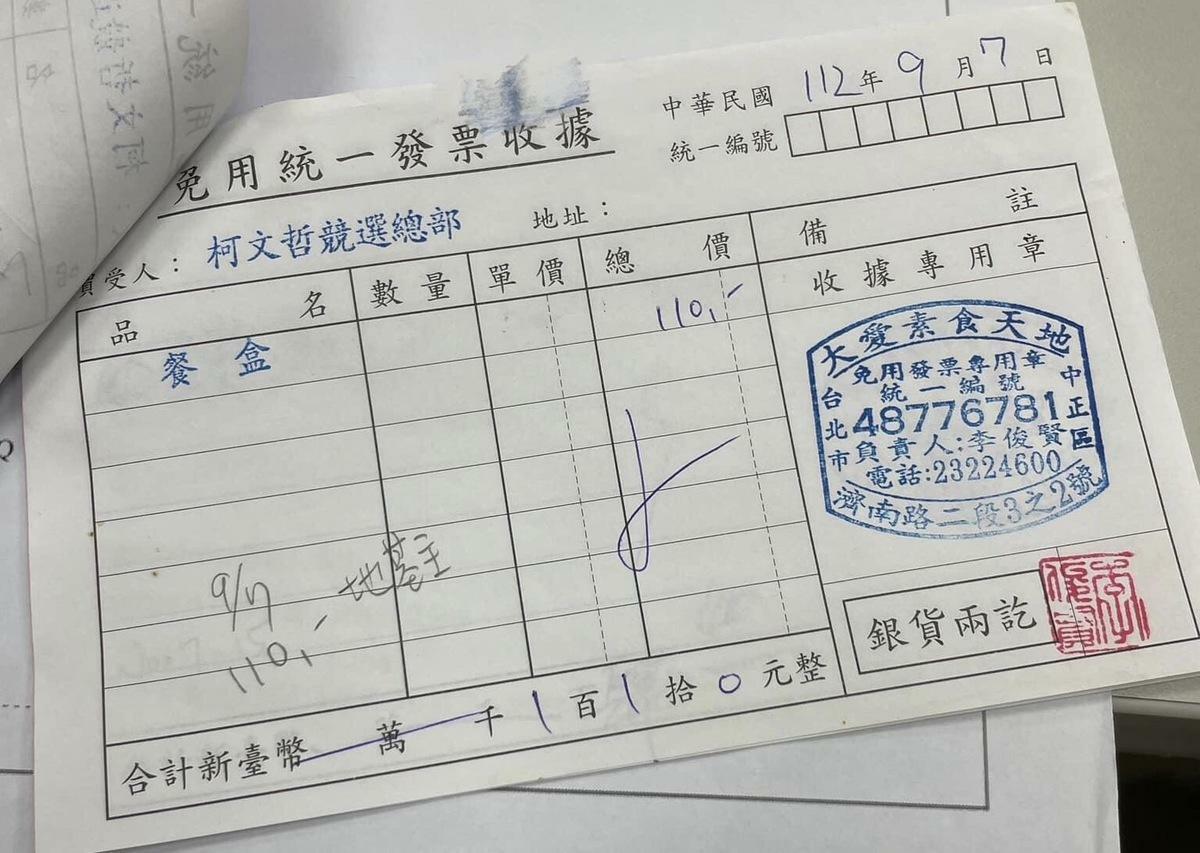 中華民國 112年 9月 7日
免用統一發票收據
統一編號
買受人： 柯文哲競選總部 地址：
品名 數量 單價 總價 備註
收據專用章
餐盒 110,-
大愛素食天地
免用發票專用章
統一編號
48776781
負責人:李俊賢
電話:23224600
台北市 中正區
濟南路二段3之2號
9/7 地基主
110,-
銀貨兩訖
合計新臺幣 萬 千 1 百 1 拾 0 元整